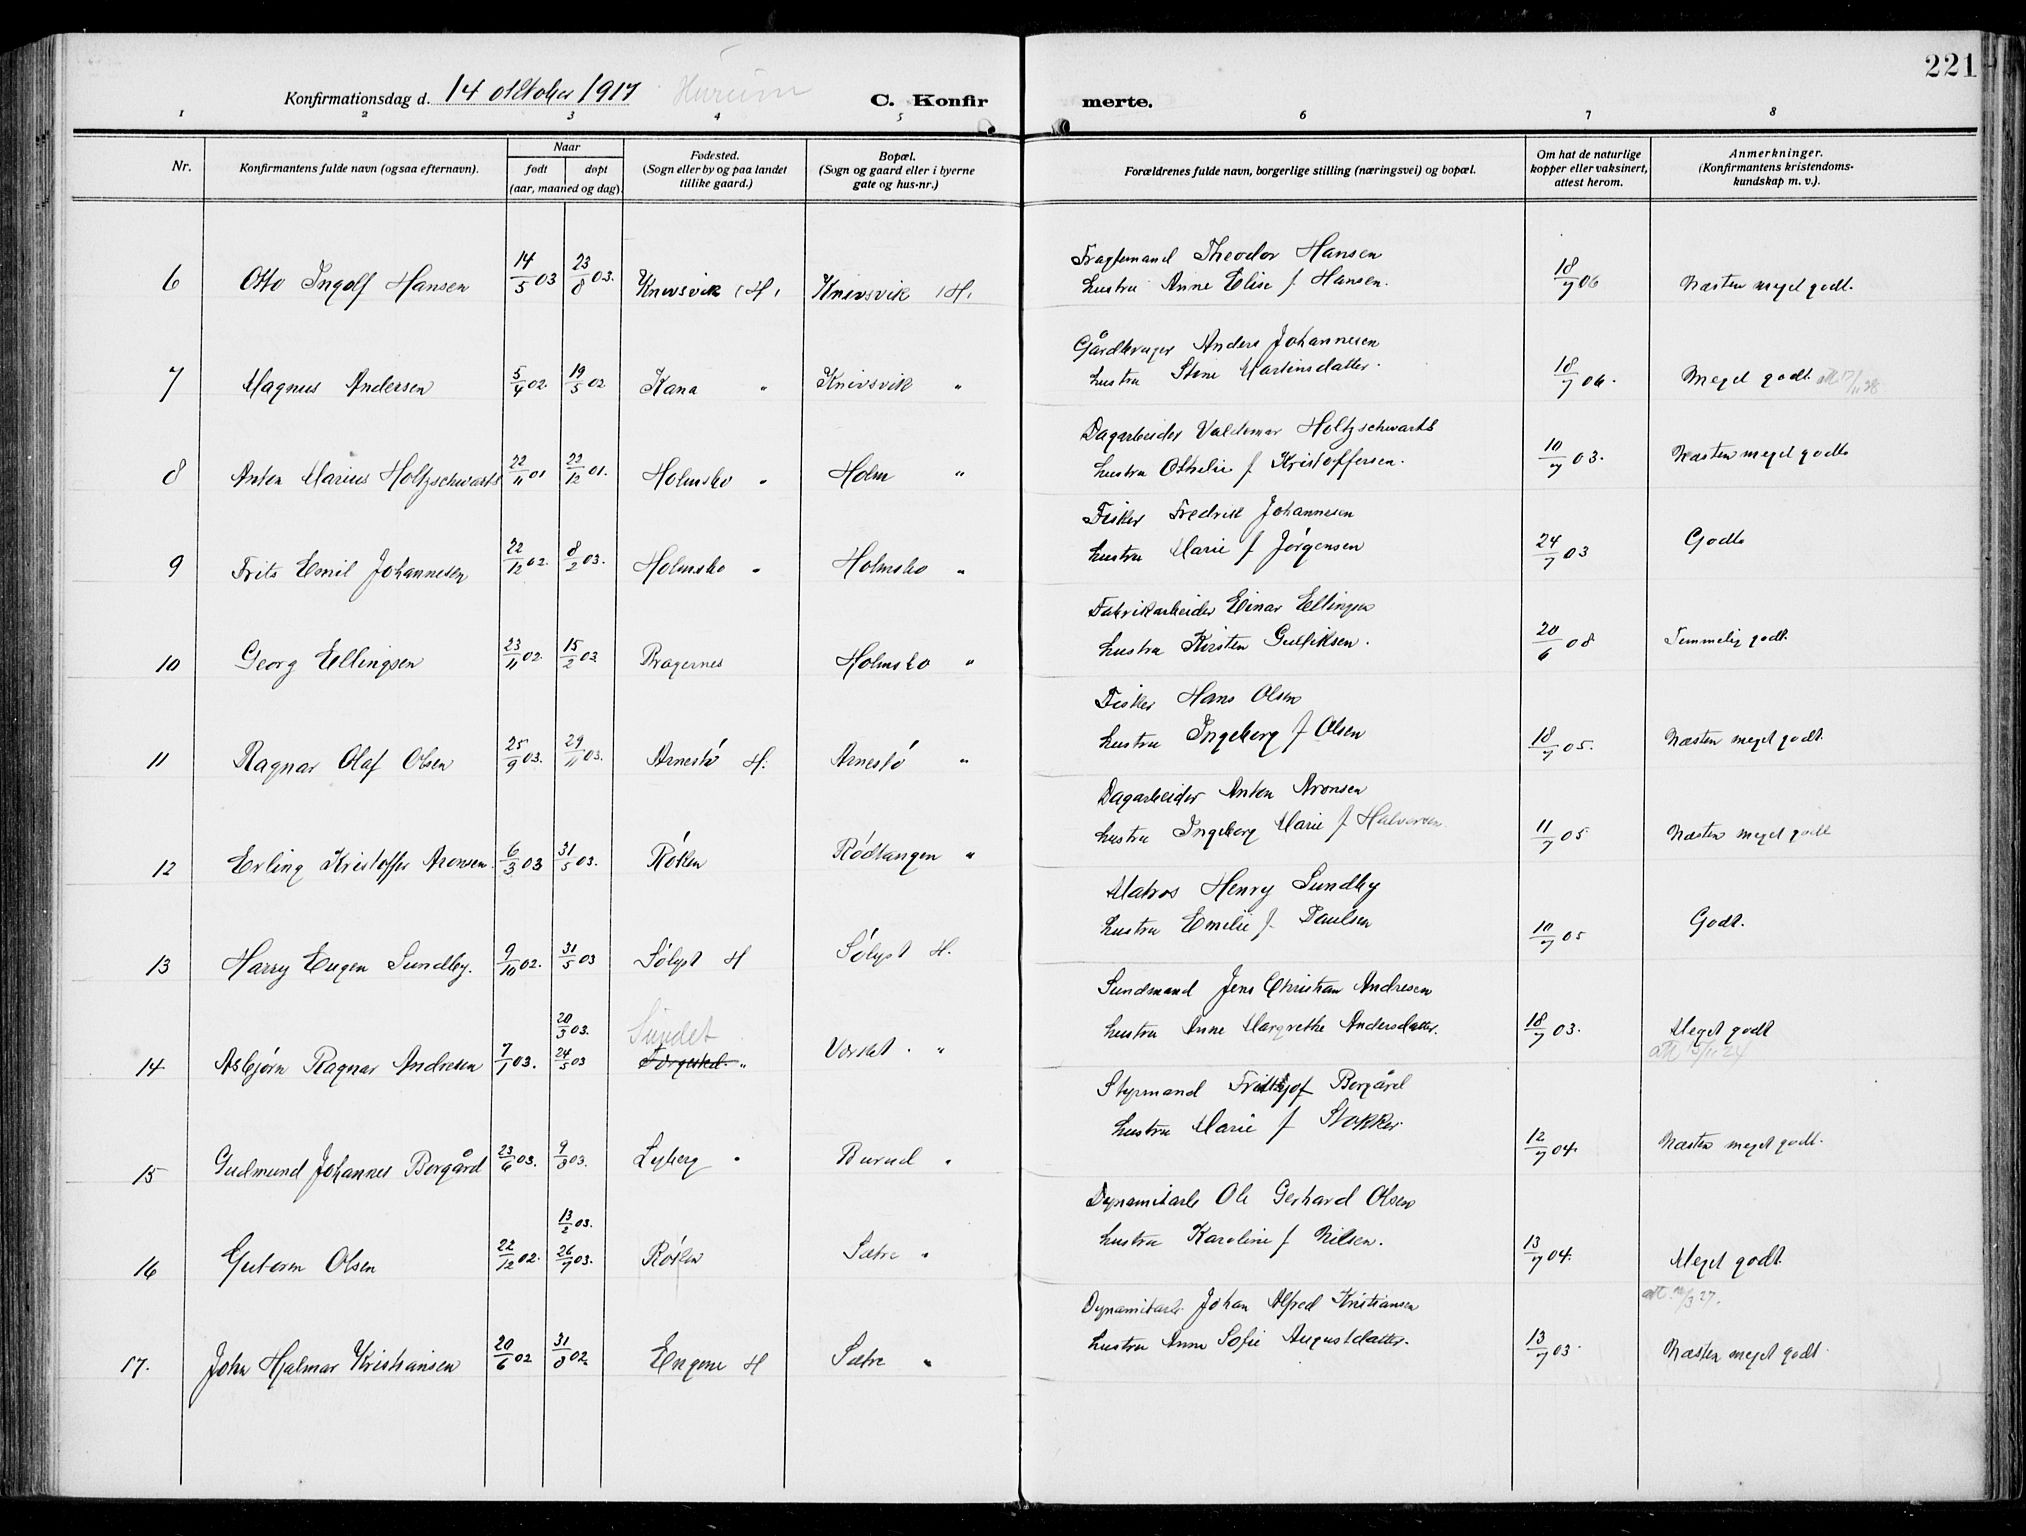 221
Konfirmationsdag d. 14 oktober 1917 Hurum C. Konfirmerte.
1 2 3 4 5 6 7 8
Nr.
Konfirmantens fulde navn (ogsaa efternavn).
Naar
født døpt
(aar, maaned og dag)
Fødested.
(Sogn eller by og paa landet
tillike gaard.)
Bopæl.
(Sogn og gaard eller i byerne
gate og hus-nr.)
Forældrenes fulde navn, borgerlige stilling (næringsvei) og bopæl.
Om hat de naturlige
kopper eller vaksinert,
attest herom.
Anmerkninger.
(Konfirmantens kristendoms-
kundskap m. v.).
Fragtemand Theodor Hansen
6 Otto Ingolf Hansen 14/5 03 23/8 03. Knivsvik (H) Knivsvik (H) hustru Anne Elise f Hansen. 18/7 06 Næsten meget godt.
Gårdbruger Anders Johannesen
7 Magnus Andersen 5/4 02 19/5 02 Kana " Knivsvik " hustru Stine Martinsdatter. 18/7 06. Meget godt. att 17/11 28
Dagarbeider Valdemar Holtzschwarts
8 Anton Marius Holtzschwarts 22/11 01 22/12 01. Holmsbo " Holm " hustru Othelie f Kristoffersen. 10/7 03. Næsten meget godt
Fisker Fredrik Johannesen
9 Frits Emil Johannesen 22/12 02. 8/2 03. Holmsbo " Holmsbo " hustru Marie f Jørgensen 24/7 03 Godt
Fabrikarbeider Einar Ellingsen
10 Georg Ellingsen 23/11 02. 15/2 03. Bragernes Holmsbo " hustru Kirsten Gulliksen. 20/6 08 Temmelig godt.
Fisker Hans Olsen
11 Ragnar Olaf Olsen 25/9 03. 29/11 03. Arnestø H. Arnestø " hustru Ingeborg f Olsen 18/7 05. Næsten meget godt.
Dagarbeider Anton Aronsen
12 Erling Kristoffer Aronsen. 6/3 03 31/5 03. Røken Rødtangen " hustru Ingeborg Marie f Halvorsen 11/7 05 Næsten meget godt
Matros Henry Sundby
13 Harry Eugen Sundby. 9/10 02. 31/5 03 Sølyst H Sølyst H. hustru Emilie f. Paulsen 10/7 05 Godt.
Sundmand Jens Christian Andresen
20/3 03. Sundet
14 Asbjørn Ragnar Andresen 7/1 03. 24/5 03 Færgested. " Værket . " hustru Anne Margrethe Andersdatter. 18/7 03. Meget godt
att 15/11 24
Styrmand Fridtjof Borgård
15 Gudmund Johannes Borgård 23/6 03. 9/8 03. Lyberg " Burud " hustru Marie f Stokker 12/7 04. Næsten meget godt.
Dynamitarb Ole Gerhard Olsen
13/2 03.
16 Gutorm Olsen 22/12 02. 26/7 03. Røken Sætre " hustru Karoline f Nilsen. 13/7 04. Meget godt.
Dynamitarb. Johan Alfred Kristiansen
17. John Hjalmar Kristiansen 20/6 02 31/8 02. Engene H Sætre " hustru Anne Sofie Augustdatter. 13/7 03. Næsten meget godt.